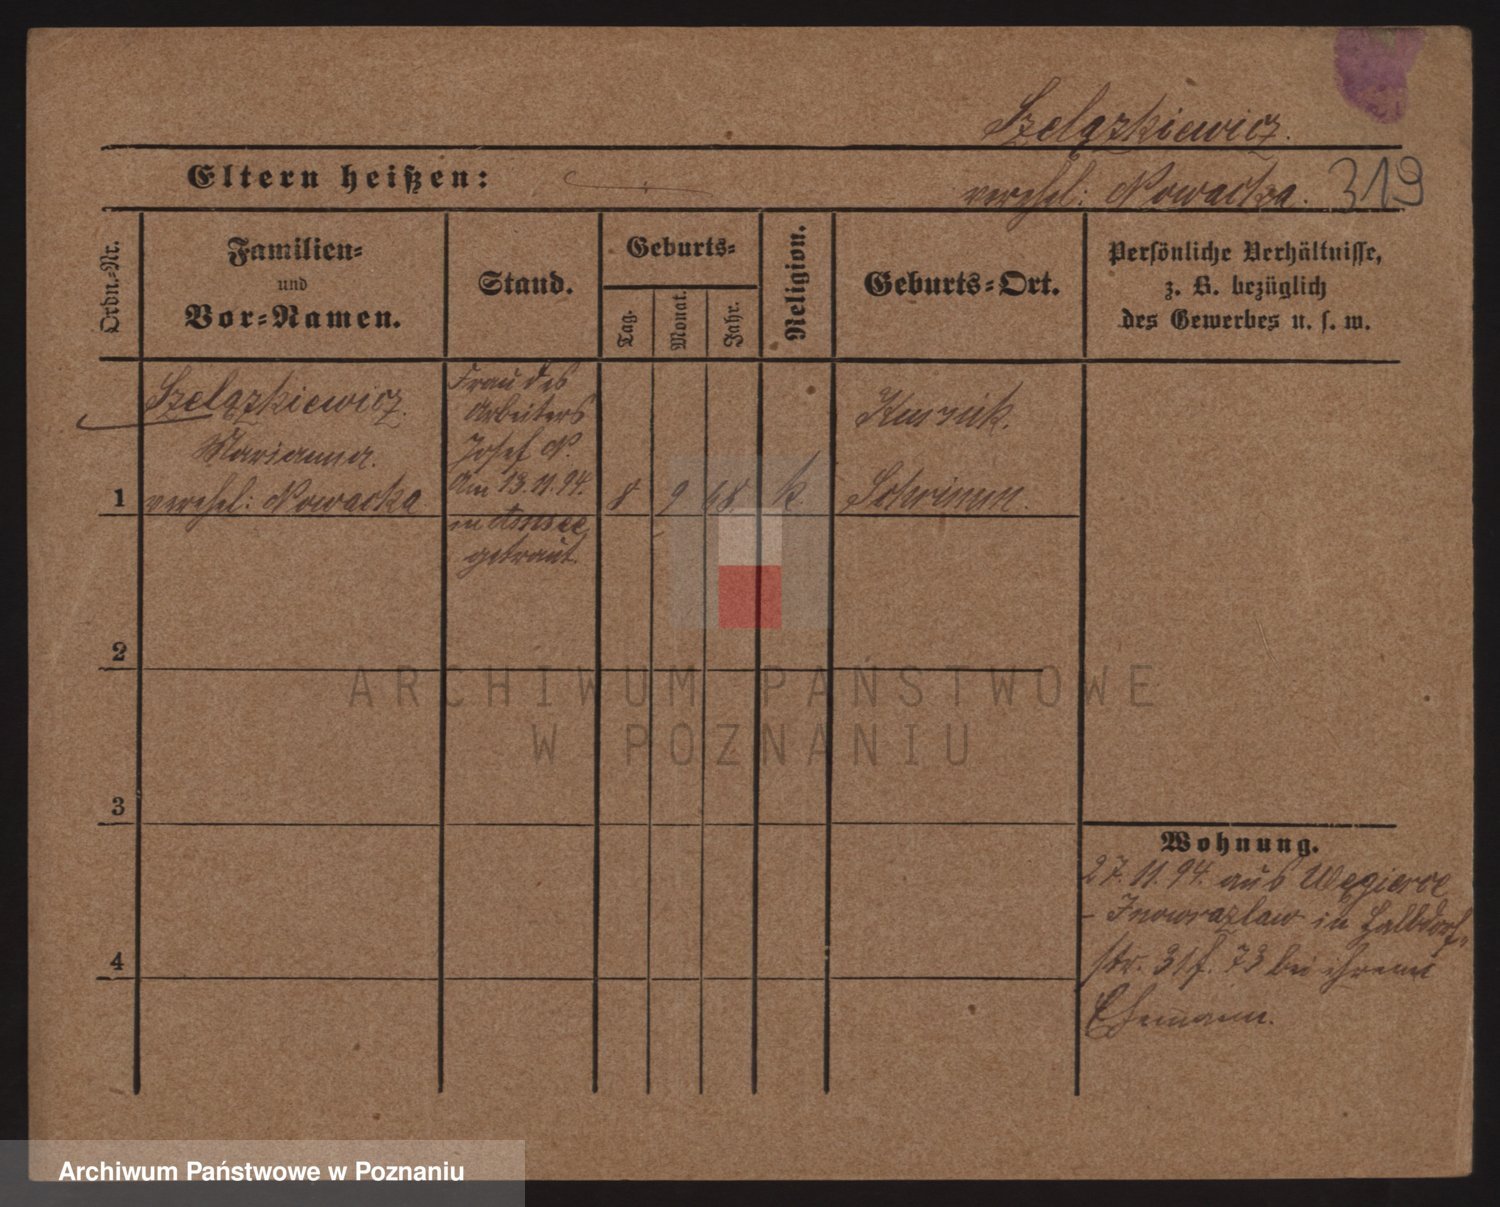 Szelązkiewicz.
Eltern heißen:
verehel: Nowacka.
319
Ordn.-Nr.
Familien-
und
Vor-Namen.
Stand.
Geburts-
Tag.
Monat.
Jahr.
Religion.
Geburts-Ort.
Persönliche Verhältnisse,
z. B. bezüglich
des Gewerbes u. s. w.
1
Szelązkiewicz.
Marianna.
verehel: Nowacka
Frau des
Arbeiters
Josef N.
Am 13.11.94.
in
getraut.
8
9
68.
k.
Schrimm.
2
3
4
Wohnung.
27.11.94. aus Węgierce
- Inowrazlaw in Halbdorf-
str. 31 f. 73 bei ihrem
Ehemann.
ARCHIWUM PAŃSTWOWE
W POZNANIU
Archiwum Państwowe w Poznaniu